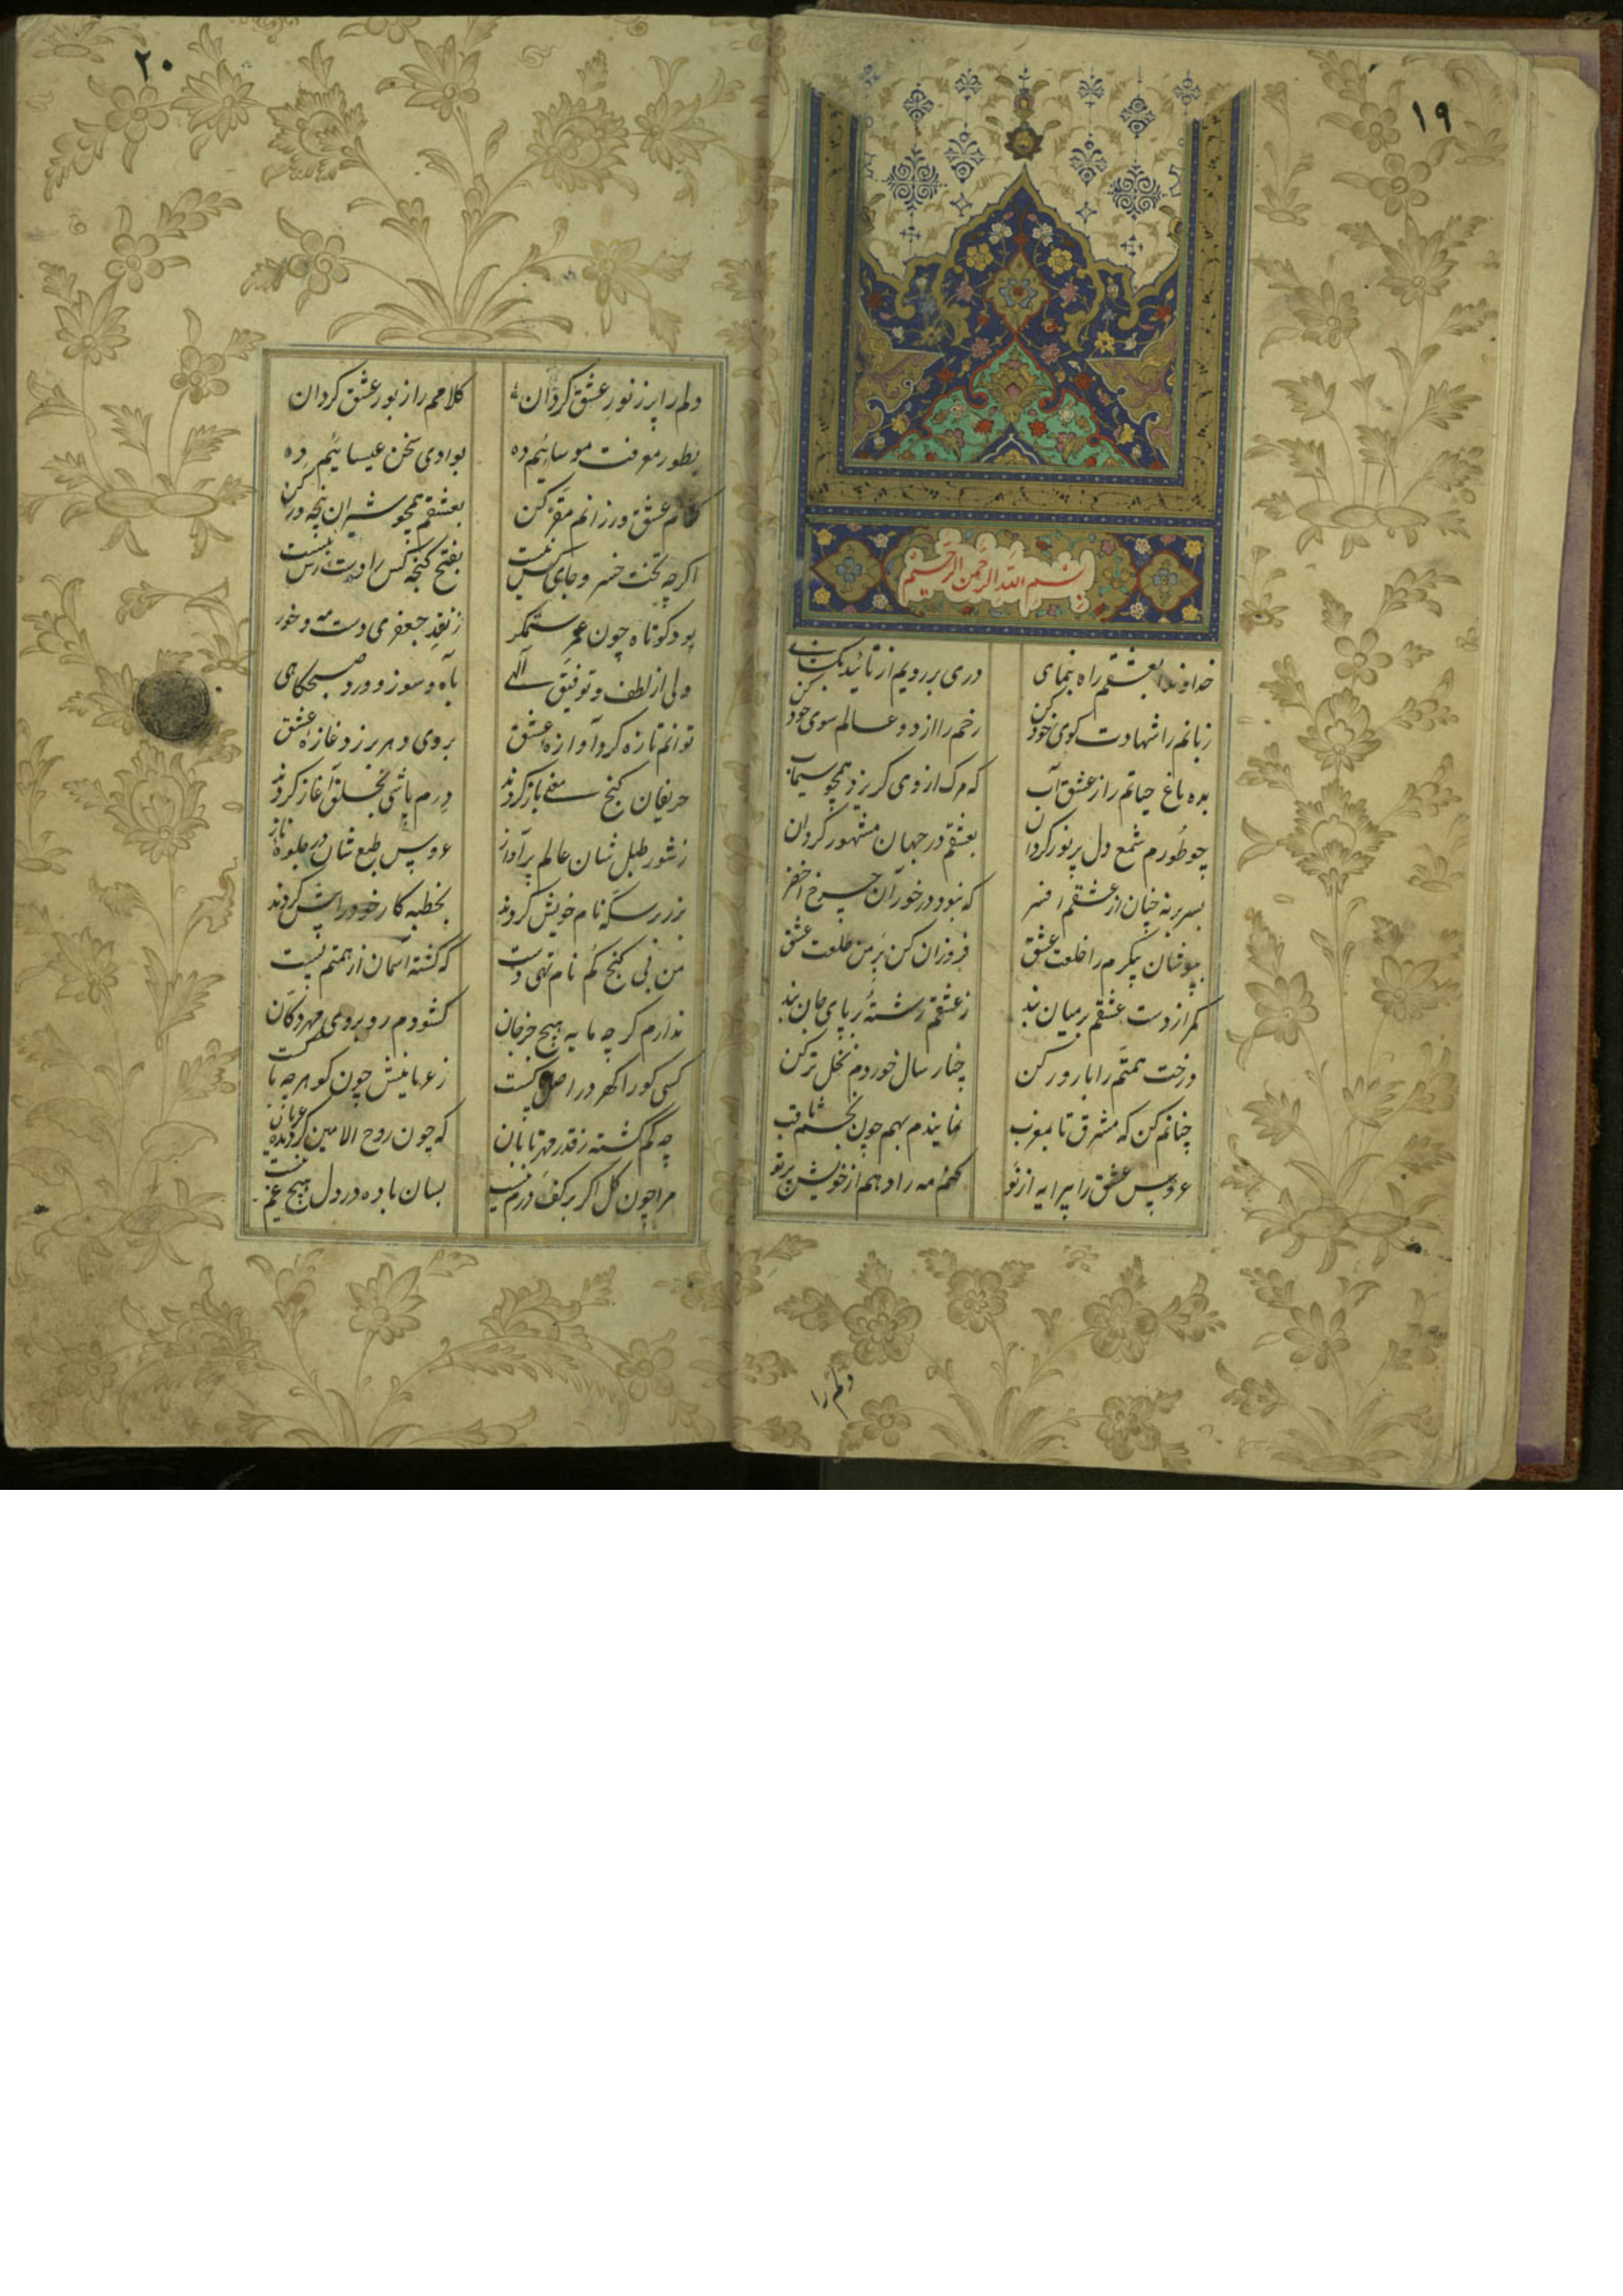 ۱۹
بسم الله الرحمن الرحیم
خداوندا بعشقم راه بنمای دری بر رویم از تائید بکشای
زبانم را شهادت کوی خود کن رخم را از دو عالم سوی خود کن
بده باغ حیاتم را ز عشق آب که مرک از وی کریزد همچو سیماب
چو طورم شمع دل پرنور کردان بعشقم در جهان مشهور کردان
بسر برنه چنان از عشقم افسر که نبود در خور آن چرخ اخضر
بپوشان پیکرم را خلعت عشق فروزان کن بر من طلعت عشق
کمر از دست عشقم بر میان بند ز عشقم رشتهٔ بر پای جان بند
درخت همتم را بارور کن چنار سال خوردم نخل تر کن
چنانم کن که مشرق تا بمغرب نمایندم بهم چون نجم ثاقب
عروس عشق را پیرایه از نو مه را دهم از خویش پرتو
دلم را
۲۰
دلم را پر ز نور عشق کردان کلامم را ز بور عشق کردان
بطور معرفت موسائیم ده بوادی سخن عیسائیم ده
کلام عشق ورزانم مقر کن بعشقم همچو شیران پنجه ور کن
اکرچه تخت خسرو جای کس نیست بفتح کنجه کس را دست رس نیست
بود کوتاه چون عمر ستمکر ز نقد جعفری دست مه و خور
ولی از لطف و توفیق آلهی بآه و سوز و ورد صبحکاهی
توانم تازه کرد آوازه عشق بروی دهر بر زد غازه عشق
حریفان کنج معنی باز کردند درم پاشی بخلق آغاز کردند
ز شور طبل شان عالم پرآواز عروس طبع شان در جلوه ناز
بزر بر سکه نام خویش کردند بخطبه کار خود را پیش کردند
من بی کنج کم نام تهی دست که کشته آسمان از همتم پست
ندارم کرچه مایه هیچ جز جان کشودم رو بروی مهر دکان
کسی کو را کهر در اصل پست ز عریانیش چون کوهر چه باکست
چه کم کشته ز قدر مهر تابان که چون روح الامین کردیده عریان
مرا چون کل اکر بر کف درم نیست بسان باده در دل هیچ غم نیست